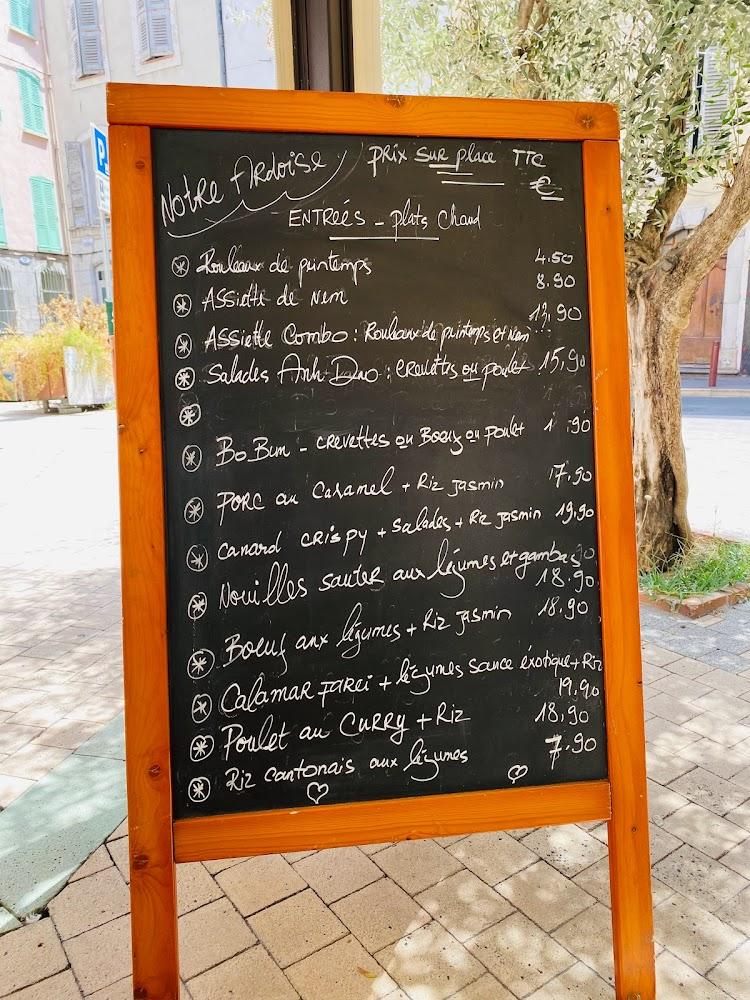 P
Notre Ardoise prix sur place TTC
€
ENTREÉS - plats Chaud
Rouleaux de printemps 4.50
Assiette de Nem 8.90
Assiette Combo : Rouleaux de printemps et Nem 13,90
Salades Anh-Dao : crevettes ou poulet 15,90
Bo Bun - crevettes ou Boeuf ou poulet
Porc au Caramel + Riz jasmin 17,90
Canard crispy + salades + Riz jasmin 19,90
Nouilles sauter aux légumes et gambas
18.90
Boeuf aux légumes + Riz jasmin 18.90
Calamar farci + légumes sauce éxotique + Riz
19,90
Poulet au Curry + Riz 18,90
Riz cantonais aux légumes 7.90